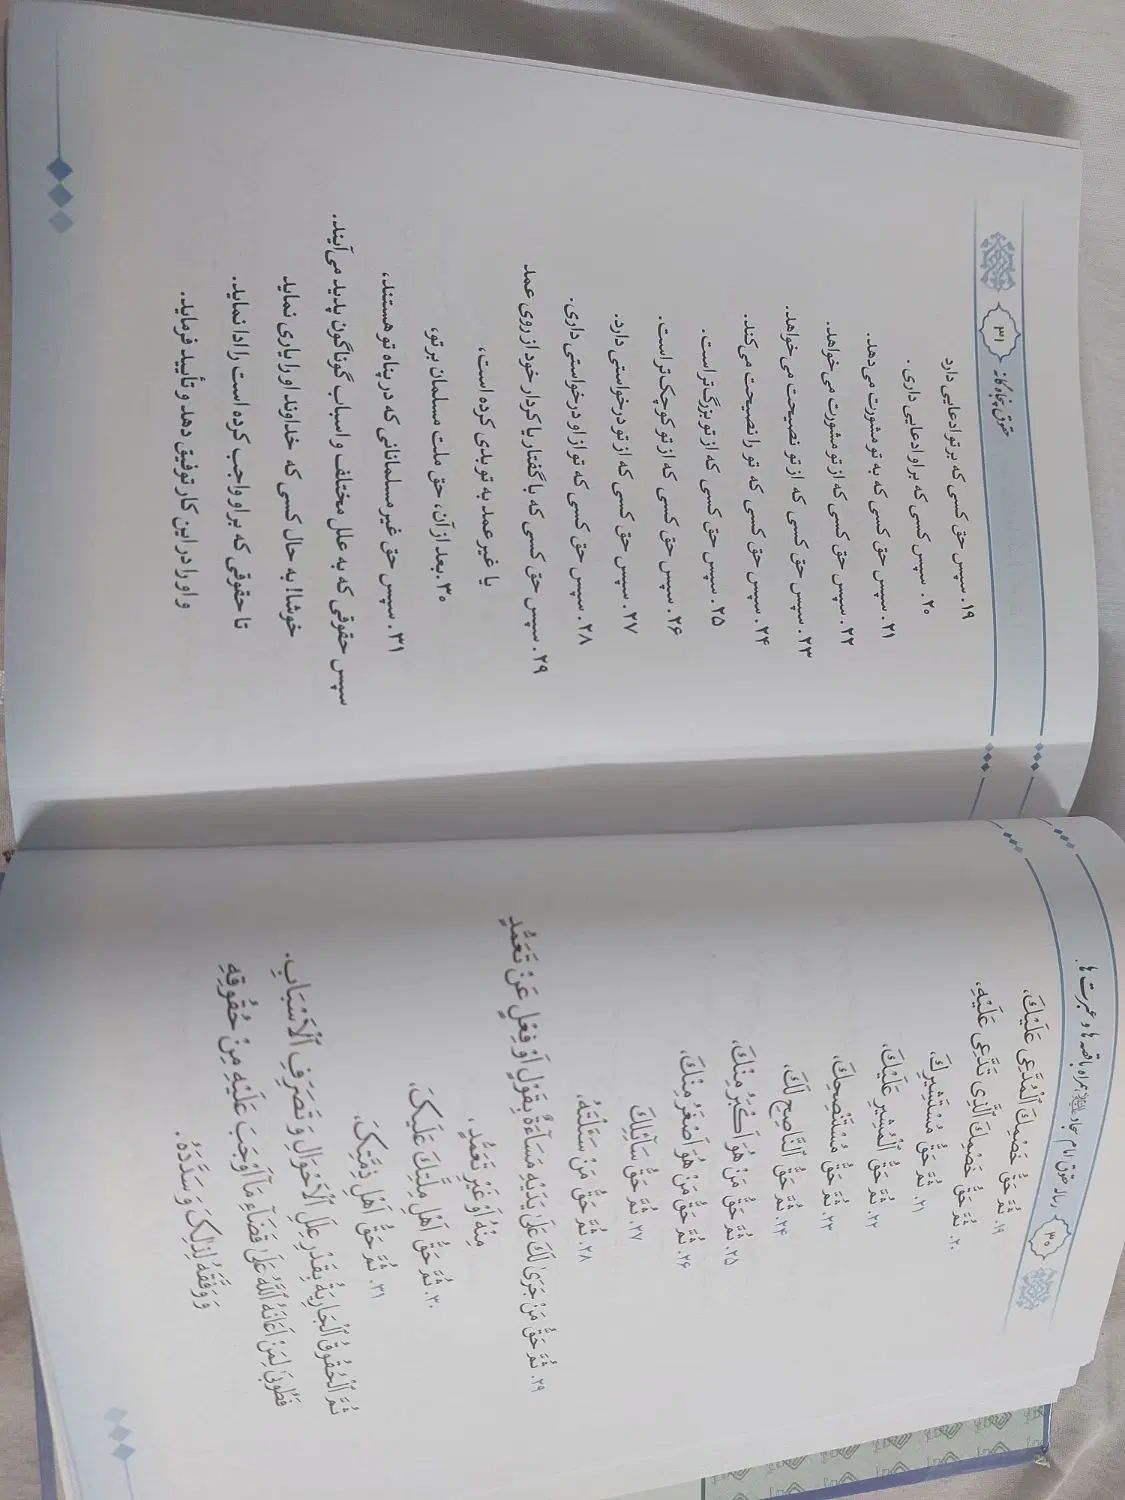 ۳۰ رساله حقوق امام سجاد علیه‌السلام همراه با قصه‌ها و عبرت‌ها
۱۹. ثُمَّ حَقُّ خَصْمِكَ ٱلْمُدَّعِی عَلَیْكَ،
۲۰. ثُمَّ حَقُّ خَصْمِكَ ٱلَّذِی تَدَّعِی عَلَیْهِ،
۲۱. ثُمَّ حَقُّ مُسْتَشِیرِكَ،
۲۲. ثُمَّ حَقُّ ٱلْمُشْیرِ عَلَیْكَ،
۲۳. ثُمَّ حَقُّ مُسْتَنْصِحِكَ،
۲۴. ثُمَّ حَقُّ ٱلنَّاصِحِ لَكَ،
۲۵. ثُمَّ حَقُّ مَنْ هُوَ اَكْبَرُ مِنْكَ،
۲۶. ثُمَّ حَقُّ مَنْ هُوَ اَصْغَرُ مِنْكَ،
۲۷. ثُمَّ حَقُّ سَآئِلِكَ
۲۸. ثُمَّ حَقُّ مَنْ سَئَلْتَهُ،
۲۹. ثُمَّ حَقُّ مَنْ جَرَیٰ لَكَ عَلَیٰ یَدَیْهِ مَسَآءَةٌ بِقَوْلٍ اَوْ فِعْلٍ عَنْ تَعَمُّدٍ
مِنْهُ اَوْ غَیْرِ تَعَمُّدٍ،
۳۰. ثُمَّ حَقُّ اَهْلِ مِلَّتِكَ عَلَیْكَ،
۳۱. ثُمَّ حَقُّ اَهْلِ ذِمَّتِكَ،
ثُمَّ ٱلْحُقُوقُ ٱلْجَارِیَةُ بِقَدْرِ عِلَلِ ٱلْاَحْوَالِ وَ تَصَرُّفِ ٱلْاَسْبَابِ.
فَطُوبَیٰ لِمَنْ اَعَانَهُ ٱللّٰهُ عَلَیٰ قَضَآءِ مَآ اَوْجَبَ عَلَیْهِ مِنْ حُقُوقِهِ
وَ وَفَّقَهُ لِذٰلِكَ وَ سَدَّدَهُ.
حقوق پنجاه گانه ۳۱
۱۹. سپس حق کسی که بر تو ادعایی دارد
۲۰. سپس کسی که بر او ادعایی داری.
۲۱. سپس حق کسی که به تو مشورت می‌دهد.
۲۲. سپس حق کسی که از تو مشورت می خواهد.
۲۳. سپس حق کسی که از تو نصیحت می خواهد.
۲۴. سپس حق کسی که تو را نصیحت می‌کند.
۲۵. سپس حق کسی که از تو بزرگ‌تر است.
۲۶. سپس حق کسی که از تو کوچک‌تر است.
۲۷. سپس حق کسی که از تو درخواستی دارد.
۲۸. سپس حق کسی که تو از او درخواستی داری.
۲۹. سپس حق کسی که با گفتار یا کردار خود از روی عمد
یا غیر عمد به تو بدی کرده است،
۳۰. بعد از آن، حق ملت مسلمان بر تو،
۳۱. سپس حق غیر مسلمانانی که در پناه تو هستند،
سپس حقوقی که به علل مختلف و اسباب گوناگون پدید می‌آیند.
خوشا! به حال کسی که خداوند او را یاری نماید
تا حقوقی که بر او واجب کرده است را ادا نماید.
و او را در این کار توفیق دهد و تأیید فرماید.